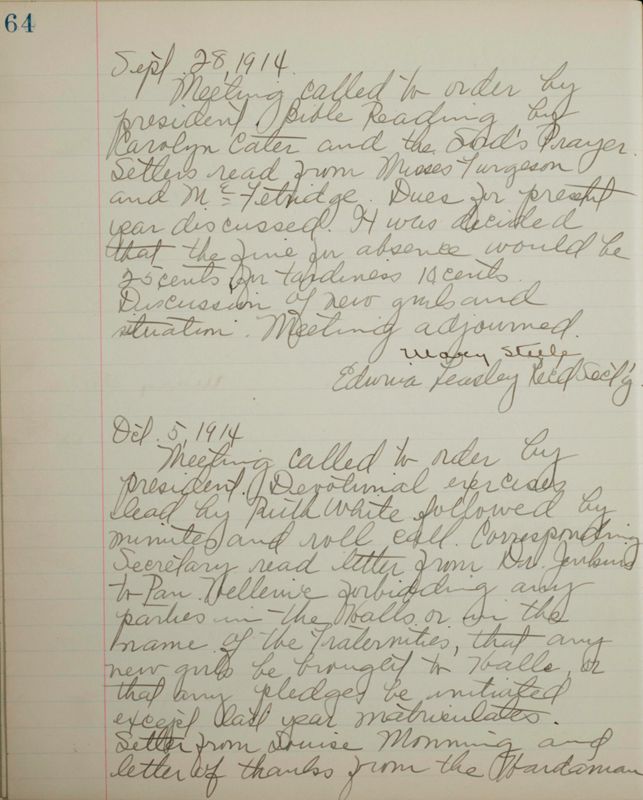 64
Sept. 28, 1914.
Meeting called to order by
president. Bible Reading by
Carolyn Cater and the Lord's Prayer.
Letters read from Misses Furgeson
and Mc Fetridge. Dues for present
year discussed. It was decided
that the fine for absence would be
25 cents for tardiness 10 cents.
Discussion of new girls and
situation. Meeting adjourned.
Mary Steele
Edwina Teasley Rec'd Sec'ty
Oct. 5, 1914
Meeting called to order by
president. Devotional exercises
lead by Ruth White followed by
minutes and roll call. Corresponding
Secretary read letter from Dr. Jenkins
to Pan. Hellenic forbidding any
parties in the Halls or in the
name of the Fraternities, that any
new girls be brought to Halls, or
that any pledges be initiated
except last year matriculates.
Letter from Louise Monning and
letter of thanks from the Hardaman